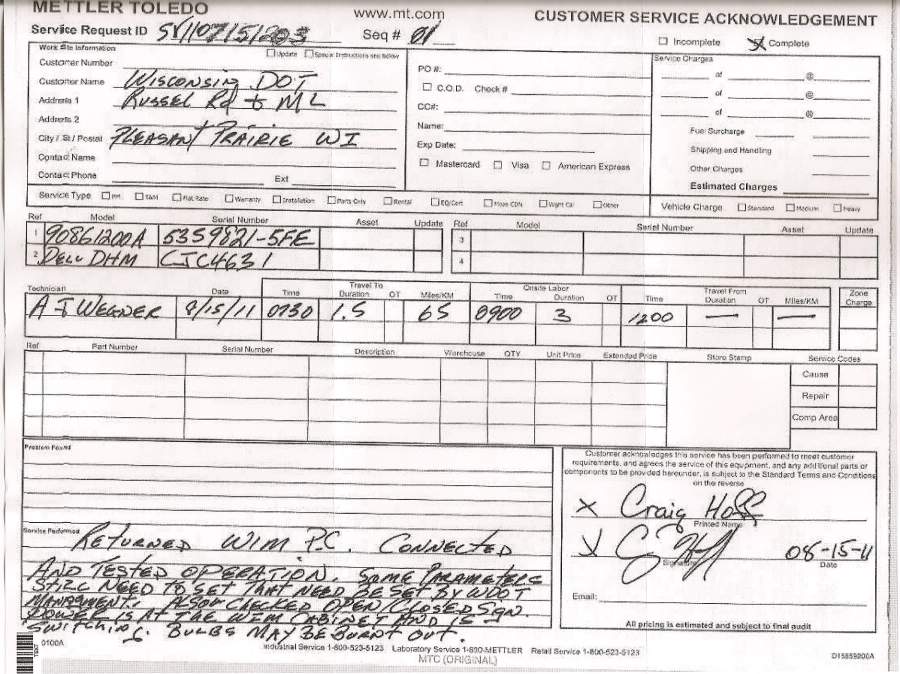 METTLER TOLEDO
www.mt.com
CUSTOMER SERVICE ACKNOWLEDGEMENT
Service Request ID SV1107151203 Seq # 01
Incomplete Complete
Work Site Information Update Special Instructions see below
Customer Number
Customer Name WISCONSIN DOT
Address 1 RUSSEL Rd & ML
Address 2
City / St / Postal PLEASANT PRAIRIE WI
Contact Name
Contact Phone Ext
PO #:
C.O.D. Check #
CC#:
Name:
Exp Date:
Mastercard Visa American Express
Service Charges
of @
of @
of @
Fuel Surcharge
Shipping and Handling
Other Charges
Estimated Charges
Service Type PM T&M Flat Rate Warranty Installation Parts Only Rental EQ/Cert Wght Cal Other
Vehicle Charge Standard Medium Heavy
Ref Model Serial Number Asset Update Ref Model Serial Number Asset Update
1 90861200A 5359821-5FE 3
2 DELL DHM CJC4631 4
Technician Date Time Travel To Duration OT Miles/KM Onsite Labor Time Duration OT Time Travel From Duration OT Miles/KM Zone Charge
A J WEGNER 8/15/11 0730 1.5 65 0900 3 1200 — —
Ref Part Number Serial Number Description Warehouse QTY Unit Price Extended Price Store Stamp Service Codes
Cause
Repair
Comp Area
Problem Found
Service Performed RETURNED WIM PC. CONNECTED
AND TESTED OPERATION. SOME PARAMETERS
STILL NEED TO SET THAT NEED BE SET BY WDOT
MANAGMENT. ALSO CHECKED OPEN/CLOSED SIGN.
POWER IS AT THE WIM CABINET AND IS
SWITCHING. BULBS MAY BE BURNT OUT.
Customer acknowledges this service has been performed to meet customer
requirements, and agrees the service of this equipment, and any additional parts or
components to be provided hereunder, is subject to the Standard Terms and Conditions
on the reverse
X Craig Hoff
Printed Name
X 08-15-11
Signature Date
Email:
All pricing is estimated and subject to final audit
0100A
Industrial Service 1-800-523-5123 Laboratory Service 1-800-METTLER Retail Service 1-800-523-5123
MTC (ORIGINAL)
D15859200A